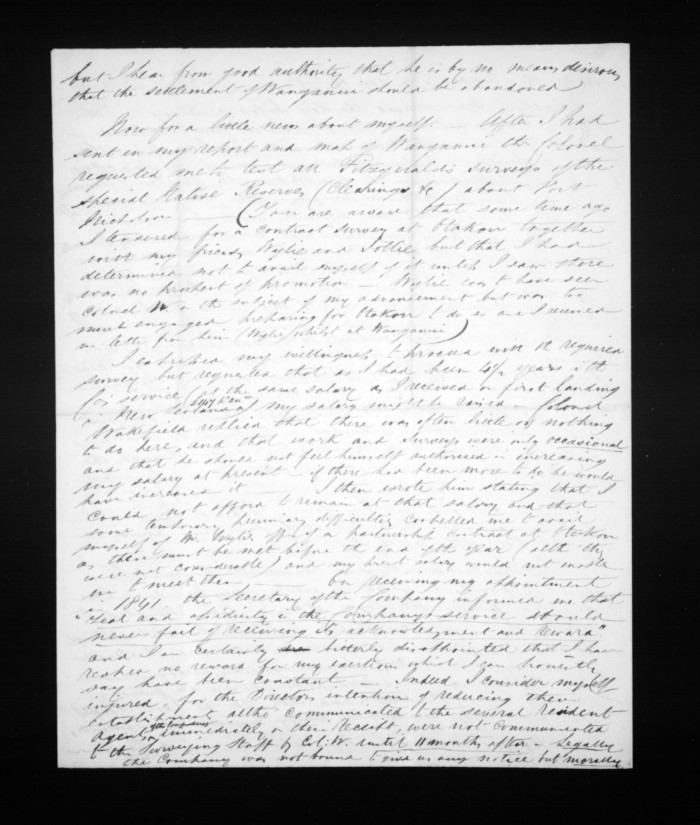 but I hear from good authority that he is by no means desirous
that the settlement of Wanganui should be abandoned
Now for a little news about myself. — After I had
sent in my report and map of Wanganui the Colonel
requested me to test all Fitzgerald's surveys of the
special Native Reserves (Clearings &c) about Port
Nicholson — (You are aware that some time ago
I tendered for a contract survey at Otakou together
with my friends Wylie and Jollie but that I had
determined not to avail myself of it unless I saw there
was no prospect of promotion — Wylie was to have seen
Colonel W. on the subject of my advancement but was too
much engaged preparing for Otakou to do so and I received
no letter from him (Wylie) whilst at Wanganui)
I expressed my willingness to proceed with the required
survey but requested that as I had been 4½ years in the
Co's service at the same salary as I received on first landing
in New Zealand my salary might be raised — Colonel
Wakefield replied that there was often little or nothing
to do here, and that work and surveys were only occasional
and that he should not feel himself authorised in increasing
my salary at present — if there had been more to do he would
have increased it — I then wrote him stating that I
could not afford to remain at that salary and that
some temporary pecuniary difficulties compelled me to avail
myself of Mr. Wylie's offer of a partnership contract at Otakou
as these must be met before the end of the year (altho' they
were not considerable) and my present salary would not enable
me to meet them — On receiving my appointment
in 1841 the Secretary of the Company informed me that
"Zeal and assiduity in the Company's service should
never fail of receiving its acknowledgment and reward"
and I am certainly bitterly disappointed that I have
reaped no reward for my exertions which I can honestly
say have been constant — Indeed I consider myself
injured, for the Directors intention of reducing their
establishment altho' communicated to the several resident
agents immediately on their receipt, were not communicated
to the Surveying Staff by Col: W. until 11 months after — Legally
the Company was not bound to give us any notice but morally